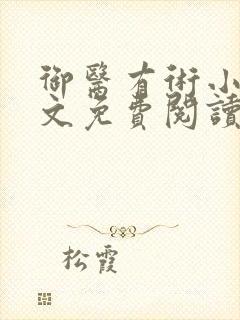 御醫有術小
文免費閱讀
松霞